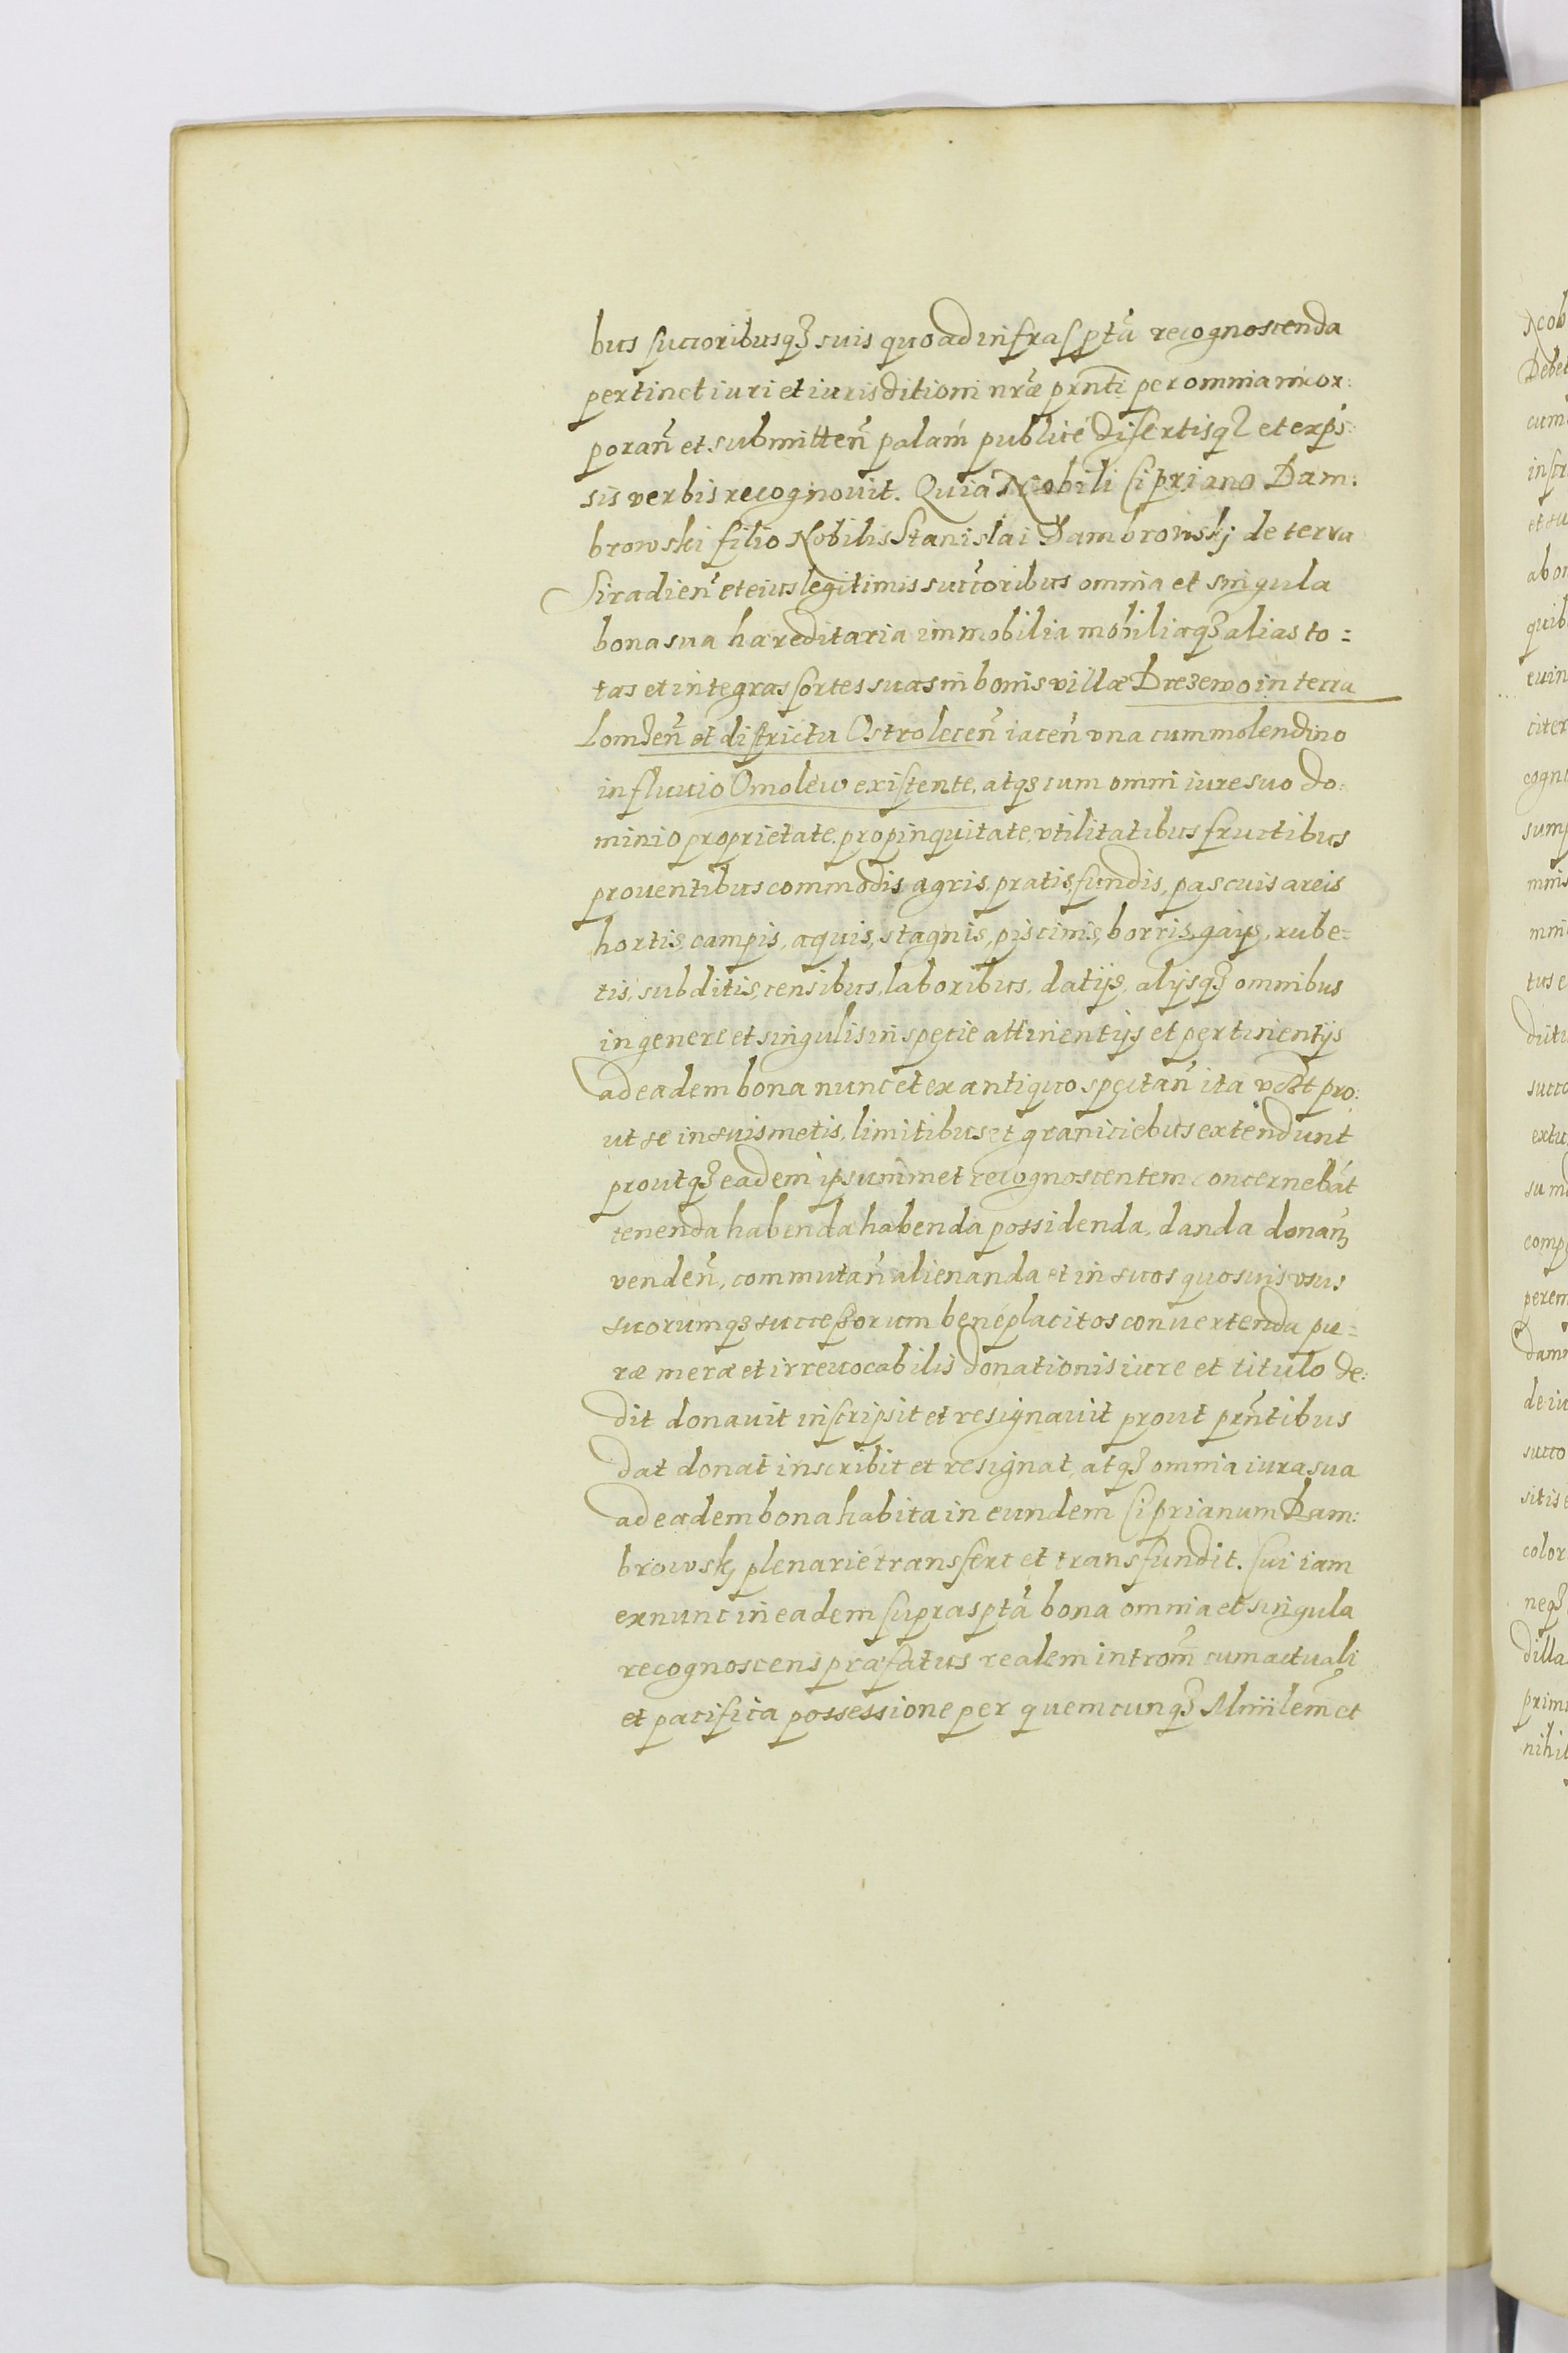 bus succoribusq₃ suis quoad infrasptã recognoscenda
pertinet iuri et iurisditioni nr̃æ prñti per omnia incor:
porañ et submitteñ palam publicé disertisq₃ et expŝ:
sis verbis recognovit. Quia Nobili Cipriano Dam:
browski filio Nobilis Stanislai Dambrowskj de terra
Siradień et eius legitimis succoribus omnia et singula
bona sua hæreditaria immobilia mobiliaq₃ alias to=
tas et integras sortes suas in bonis villæ Drezewo in terra
Lomżeñ et districtu Ostroleceñ iaceñ vna cum molendino
in fluuio Omolew existente, atq₃ cum omni iure suo do:
minio proprietate, propinquitate, vtilitatibus fructibus
prouentibus commodis agris, pratis fundis, pascuis areis
hortis, campis, aquis, stagnis, piscinis, borris, gays, rube=
tis, subditis, censibus, laboribus, datijs, alijsq₃ omnibus
in genere et singulis in specie attinentijs et pertinentijs
ad eadem bona nunc et ex antiquo spectañ ita pro:
ut se in suis metis, limitibus et graniciebus extendunt
proutq₃ eadem ipsummet recognoscentem concernebãt
tenenda habenda habenda possidenda, danda donañ
vendeñ, commutañ alienanda et in suos quosuis vsus
suorumq₃ successorum beneplacitos conuertenda pu=
ræ meræ et irreuocabilis donationis iure et titulo de:
dit donauit inscripsit et resignauit prout prñtibus
dat donat inscribit et resignat, atq₃ omnia iura sua
ad eadem bona habita in eundem Ciprianum Dam:
browskj plenarie transfert et transfundit. Cui iam
ex nunc in eadem suprasptã bona omnia et singula
recognoscens præfatus realem introm̃ cum actuali
et pacifica possessione per quemcunq₃ Mĩnlem̃ et